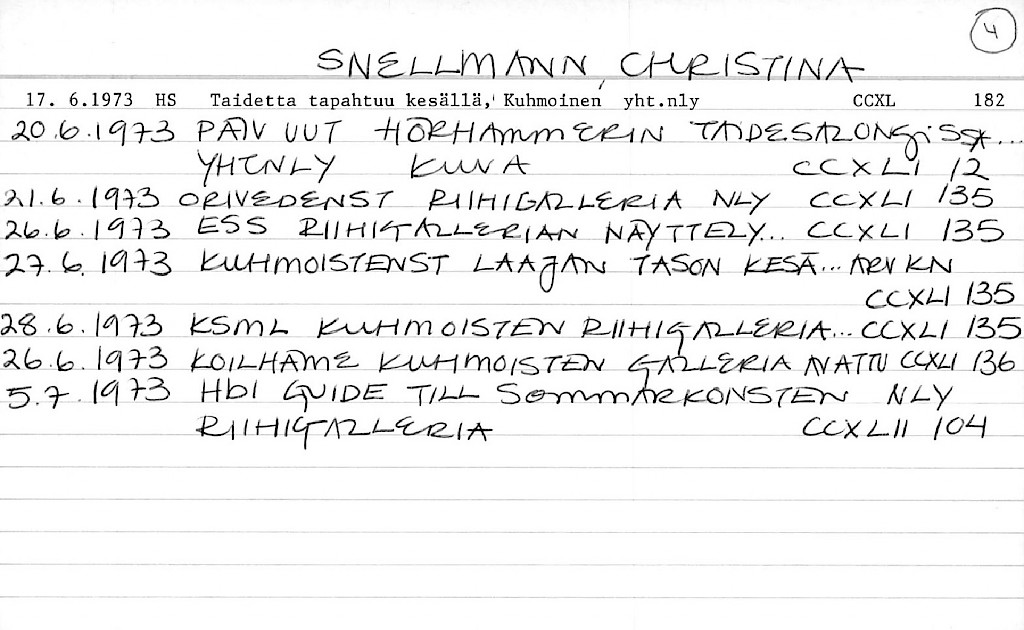 4
SNELLMANN, CHRISTINA
17. 6.1973 HS Taidetta tapahtuu kesällä, Kuhmoinen yht.nly CCXL 182
20.6.1973 PÄIV UUT HÖRHAMMERIN TAIDESALONGISSA...
YHTNLY KUVA CCXLI 12
21.6.1973 ORIVEDENST RIIHIGALLERIA NLY CCXLI 135
26.6.1973 ESS RIIHIGALLERIAN NÄYTTELY... CCXLI 135
27.6.1973 KUHMOISTENST LAAJAN TASON KESÄ... ARV KN
CCXLI 135
28.6.1973 KSML KUHMOISTEN RIIHIGALLERIA... CCXLI 135
26.6.1973 KOILHÄME KUHMOISTEN GALLERIA AVATTU CCXLI 136
5.7.1973 Hbl GUIDE TILL SOMMARKONSTEN NLY
RIIHIGALLERIA CCXLII 104